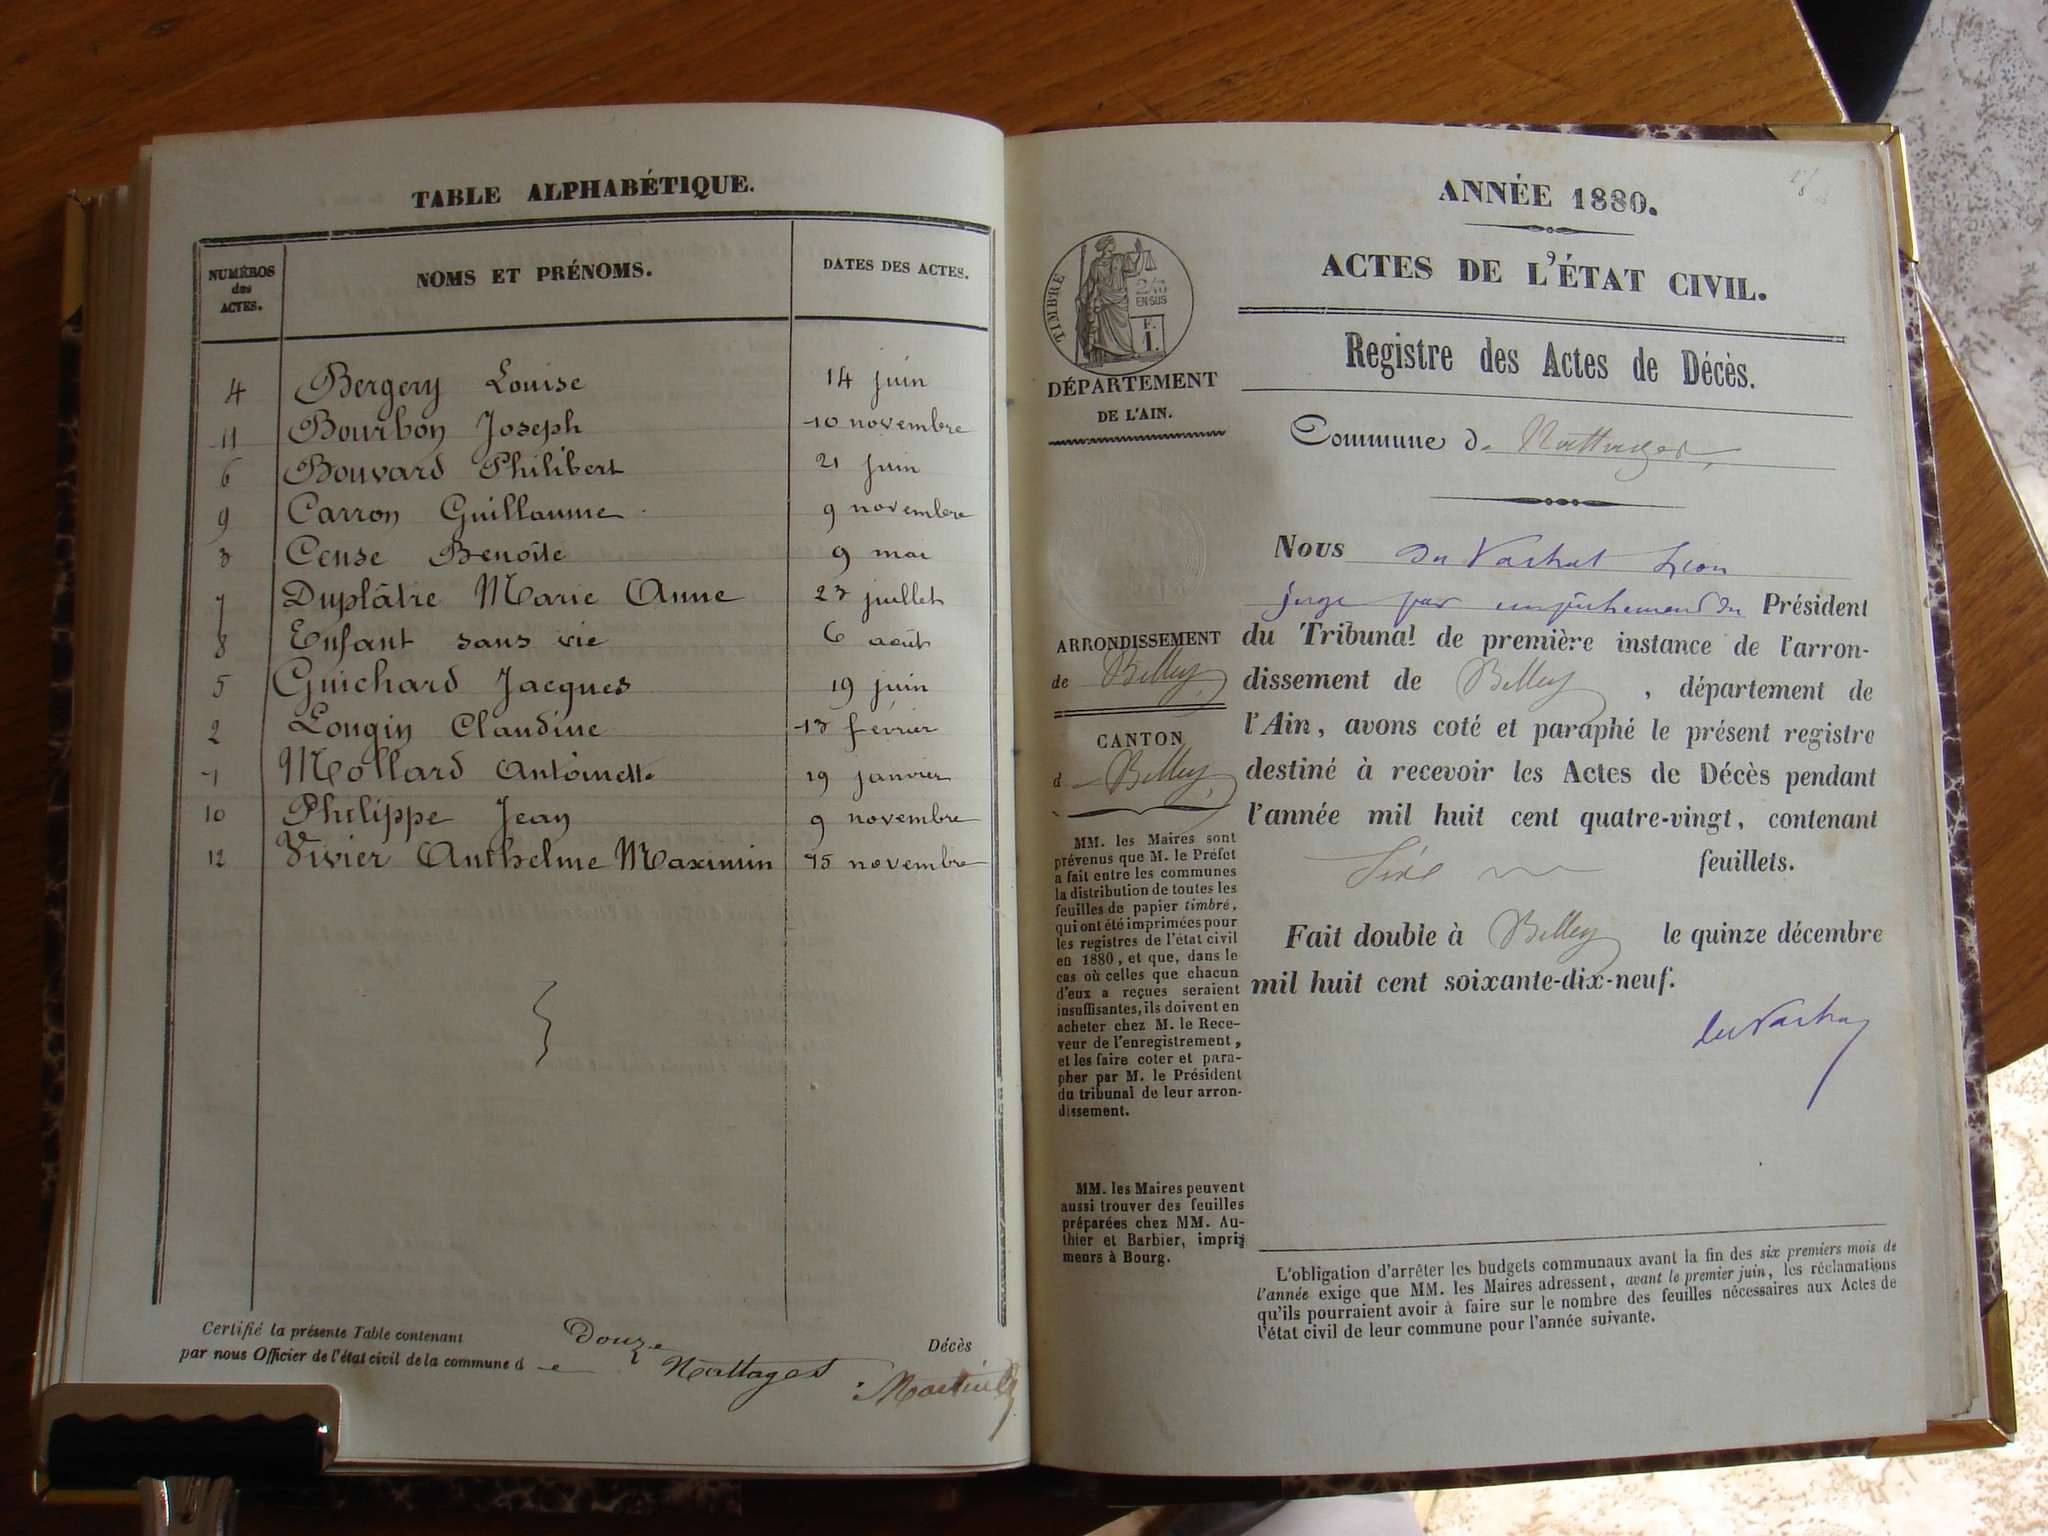 TABLE ALPHABÉTIQUE.
NUMÉROS des ACTES. NOMS ET PRÉNOMS. DATES DES ACTES.
4 Bergery Louise 14 juin
11 Bourbon Joseph 10 novembre
6 Bouvard Philibert 21 juin
9 Carron Guillaume 9 novembre
3 Cense Benoîte 9 mai
7 Duplâtre Marie Anne 23 juillet
8 Enfant sans vie 6 août
5 Guichard Jacques 19 juin
2 Longin Claudine 13 février
1 Mollard Antoinette 19 janvier
10 Philippe Jean 9 novembre
12 Vivier Anthelme Maximin 15 novembre
Certifié la présente Table contenant Douze Décès
par nous Officier de l'état civil de la commune de Nattages
ANNÉE 1880.
ACTES DE L'ÉTAT CIVIL.
Registre des Actes de Décès.
TIMBRE
2/10
EN SUS
F.
1.
DÉPARTEMENT
DE L'AIN.
Commune de Nattages,
Nous du Vachat Léon
juge par empêchement du Président
du Tribunal de première instance de l'arron-
dissement de Belley, département de
l'Ain, avons coté et paraphé le présent registre
destiné à recevoir les Actes de Décès pendant
l'année mil huit cent quatre-vingt, contenant
feuillets.
Fait double à Belley le quinze décembre
mil huit cent soixante-dix-neuf.
du Vachat
ARRONDISSEMENT
de Belley,
CANTON
d Belley,
MM. les Maires sont
prévenus que M. le Préfet
a fait entre les communes
la distribution de toutes les
feuilles de papier timbré,
qui ont été imprimées pour
les registres de l'état civil
en 1880, et que, dans le
cas où celles que chacun
d'eux a reçues seraient
insuffisantes, ils doivent en
acheter chez M. le Rece-
veur de l'enregistrement,
et les faire coter et para-
pher par M. le Président
du tribunal de leur arron-
dissement.
MM. les Maires peuvent
aussi trouver des feuilles
préparées chez MM. Au-
thier et Barbier, impri-
meurs à Bourg.
L'obligation d'arrêter les budgets communaux avant la fin des six premiers mois de
l'année exige que MM. les Maires adressent, avant le premier juin, les réclamations
qu'ils pourraient avoir à faire sur le nombre des feuilles nécessaires aux Actes de
l'état civil de leur commune pour l'année suivante.